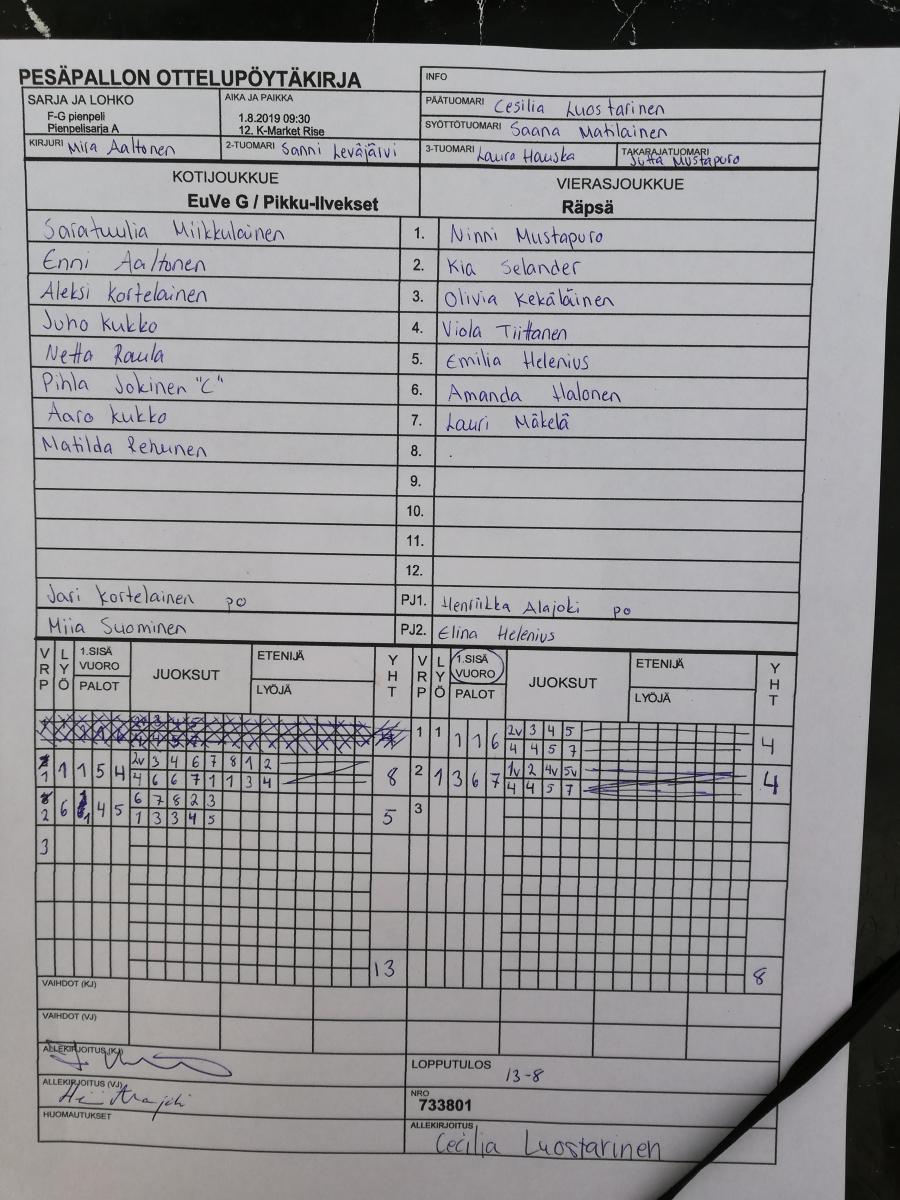 PESÄPALLON OTTELUPÖYTÄKIRJA
INFO
SARJA JA LOHKO
F-G pienpeli
Pienpelisarja A
AIKA JA PAIKKA
1.8.2019 09:30
12. K-Market Rise
PÄÄTUOMARI Cesilia Luostarinen
SYÖTTÖTUOMARI Saana Matilainen
KIRJURI Mira Aaltonen
2-TUOMARI Sanni Leväjärvi
3-TUOMARI Laura Hauska
TAKARAJATUOMARI Jutta Mustapuro
KOTIJOUKKUE
EuVe G / Pikku-Ilvekset
VIERASJOUKKUE
Räpsä
Saratuulia Miikkulainen 1. Ninni Mustapuro
Enni Aaltonen 2. Kia Selander
Aleksi Kortelainen 3. Olivia Kekäläinen
Juho Kukko 4. Viola Tiittanen
Netta Raula 5. Emilia Helenius
Pihla Jokinen "C" 6. Amanda Halonen
Aaro Kukko 7. Lauri Mäkelä
Matilda Rehunen 8.
9.
10.
11.
12.
Jari Kortelainen po PJ1. Henriikka Alajoki po
Miia Suominen PJ2. Elina Helenius
VRP LYÖ 1.SISÄ VUORO PALOT JUOKSUT ETENIJÄ LYÖJÄ YHT VRP LYÖ 1.SISÄ VUORO PALOT JUOKSUT ETENIJÄ LYÖJÄ YHT
1 1 1 1 6 2v 3 4 5 4
4 4 5 7
1 1 1 5 4 2v 3 4 6 7 8 1 2 8 2 1 3 6 7 1v 2 4v 5v 4
4 6 6 7 1 1 3 4 4 4 5 7
2 6 1 4 5 6 7 8 2 3 5 3
1 3 3 4 5
3
13 8
VAIHDOT (KJ)
VAIHDOT (VJ)
ALLEKIRJOITUS (KJ)
LOPPUTULOS 13-8
ALLEKIRJOITUS (VJ)
NRO
733801
HUOMAUTUKSET
ALLEKIRJOITUS
Cecilia Luostarinen